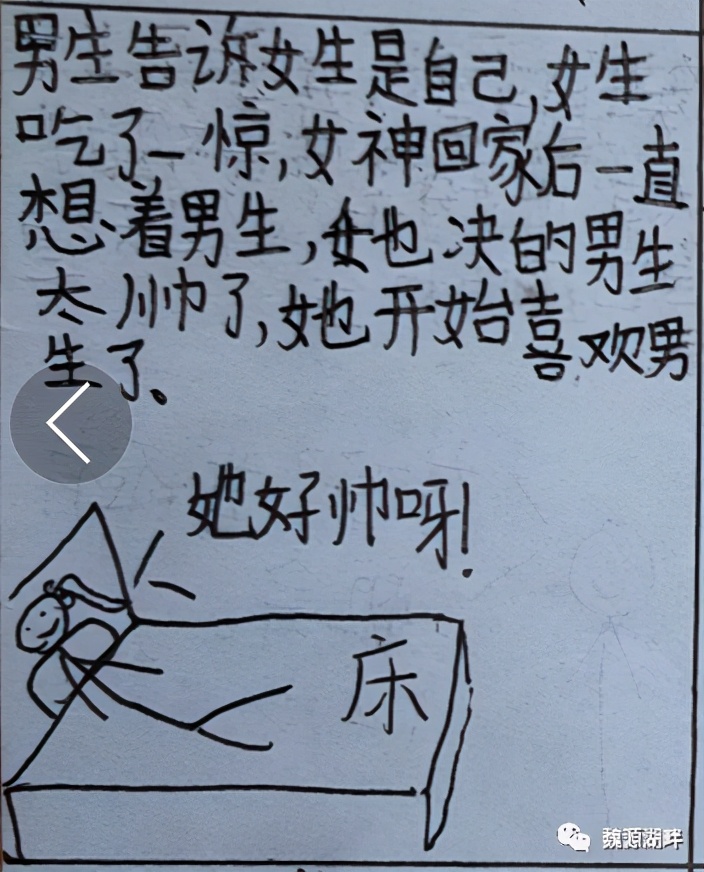 男生告诉女生是自己,女生
吃了一惊,女神回家后一直
想着男生,女也决的男生
太帅了,她开始喜欢男
生了。
她好帅呀!
床
魏源湖畔